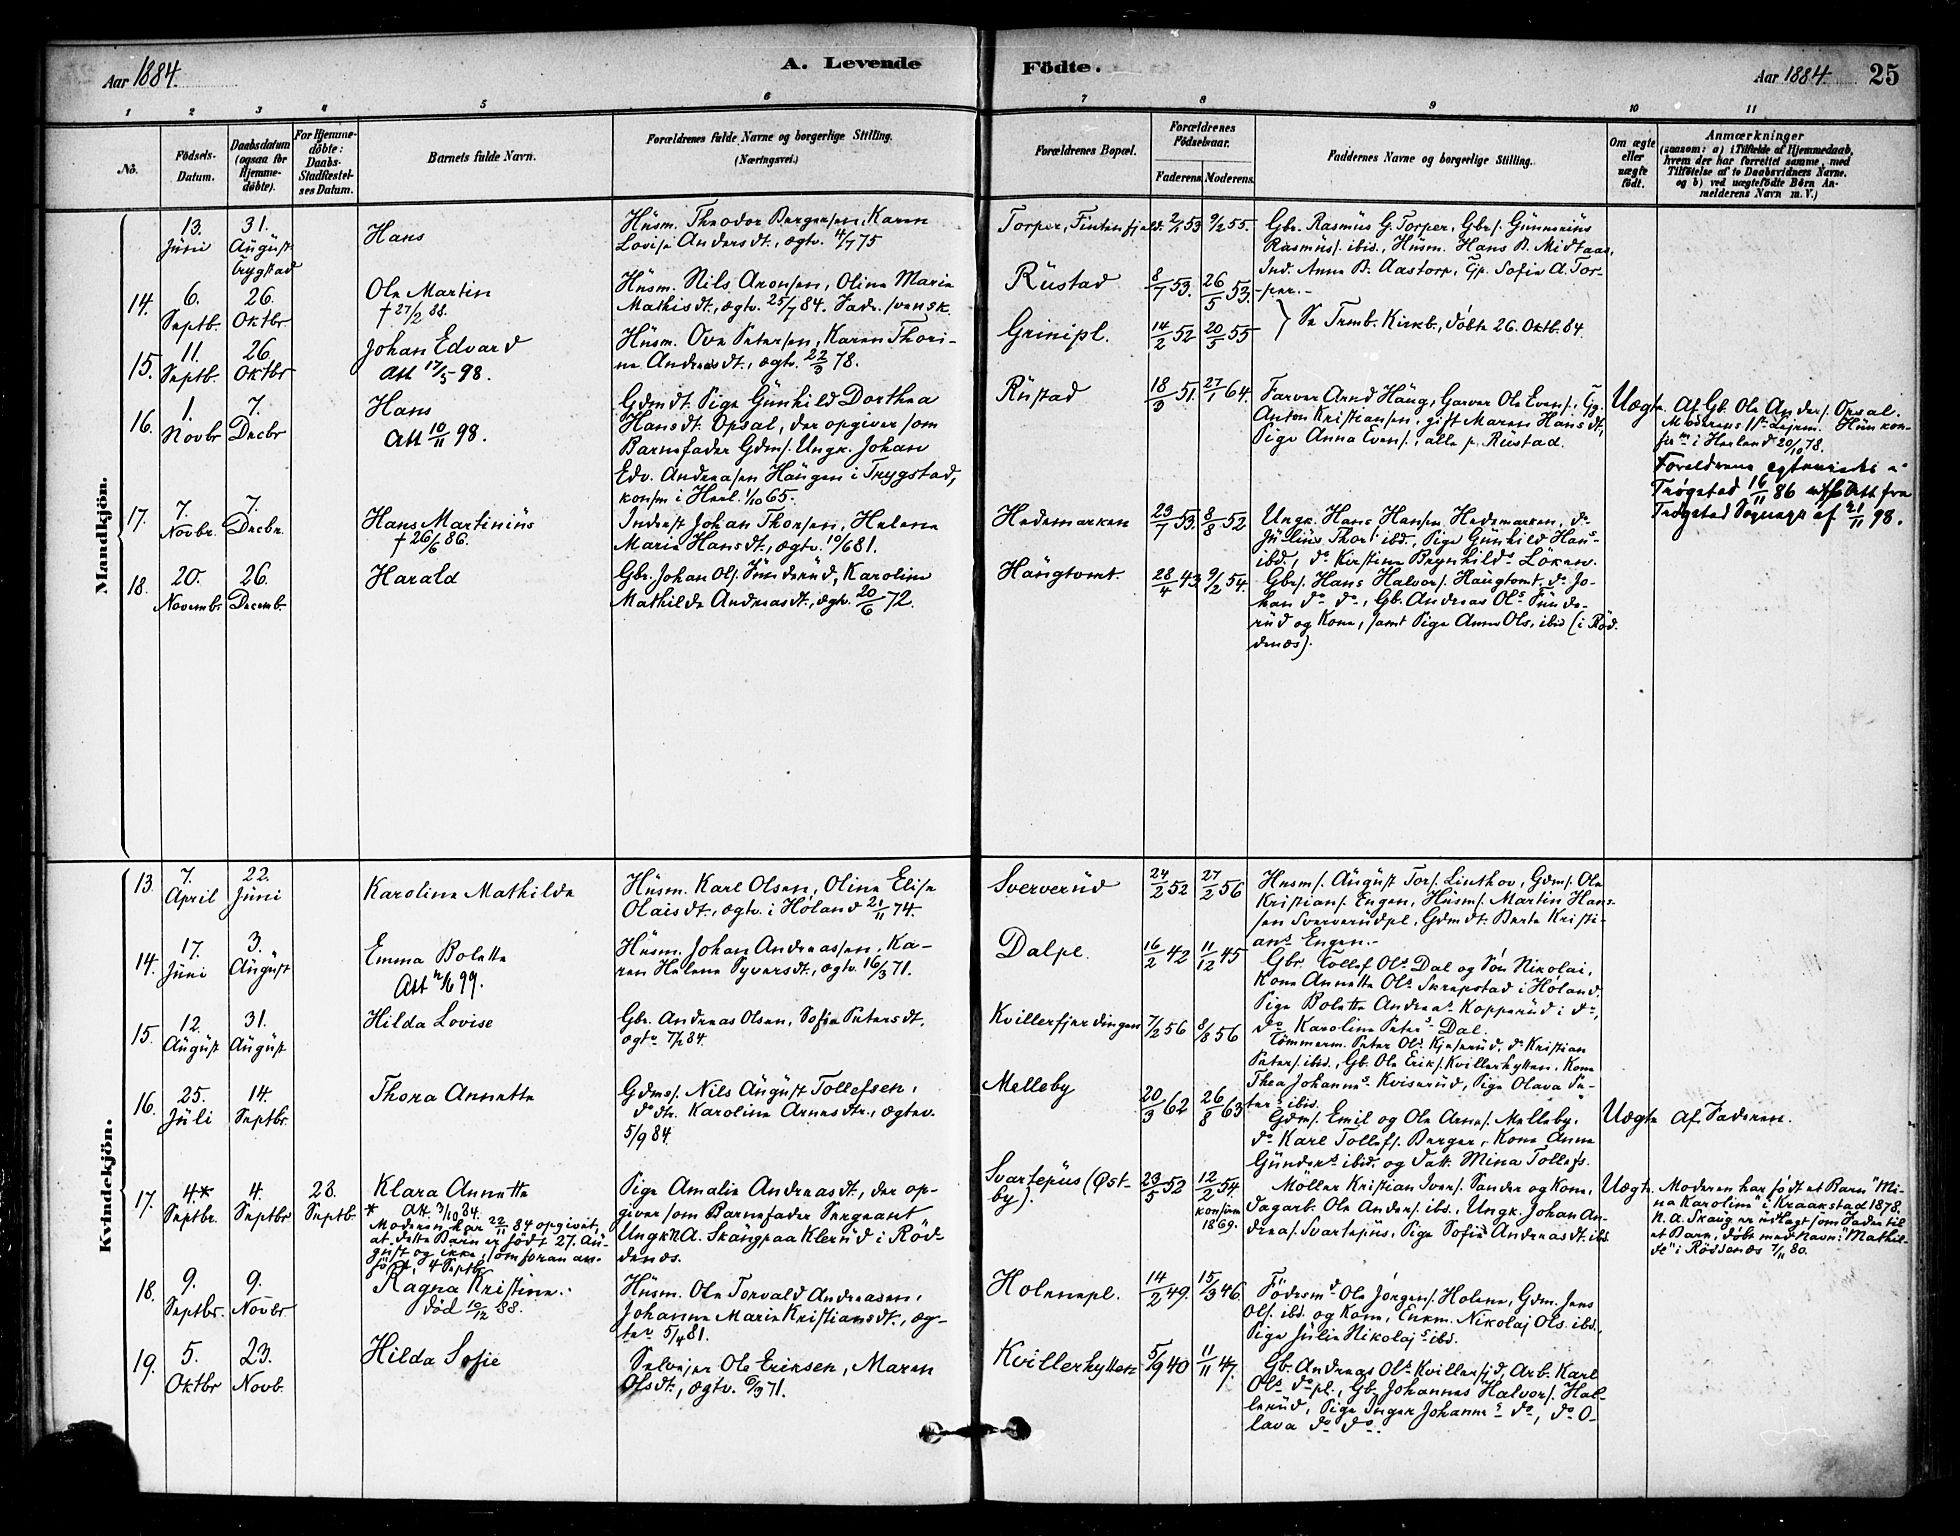 Aar 1884.
A. Levende
Födte.
Aar 1884. 25
1 2 3 4 5 6 7 8 9 10 11
No.
Födsels-Datum.
Daabsdatum (ogsaa for Hjemme-döbte).
For Hjemme-döbte: Daabs-Stadfæstel-ses Datum.
Barnets fulde Navn.
Forældrenes fulde Navne og borgerlige Stilling.
(Næringsvei.)
Forældrenes Bopæl.
Forældrenes Födselsaar.
Faderens Moderens.
Faddernes Navne og borgerlige Stilling.
Om ægte eller uægte födt.
Anmærkninger
(saasom: a) i Tilfælde af Hjemmedaab,
hvem der har forrettet samme, med
Tilföielse af to Daabsvidners Navne.
og b) ved uægtefödte Börn An-
melderens Navn m. V.)
Mandkjön.
13. Juni
31. August Trygstad
Hans
Husm. Theodor Bergersen, Karen
Lovise Andersdt., ægtv. 4/7 75
Torper, Fintenfjeld.
2/5 53 9/2 55.
Gbr. Rasmus G. Torper, Gbrs. Gunnerius
Rasmus. ibid., Husm. Hans B. Midtaas,
Ind. Anne B. Aastorp, Tjp. Sofie A. Tor-
per.-
14. 6. Septb. 26. Oktbr.
Ole Martin
† 27/2 88.
Husm. Nils Aronsen, Oline Marie
Mathisdt., ægtv. 25/7 84. Fadr. svensk.
Rustad
8/7 53. 26/5 53.
} Se Tremb. Kirkb., döbte 26. Oktb. 84.
15. 11. Septb. 26. Oktbr
Johan Edvard
Att 17/5 98.
Husm. Ove Petersen, Karen Thori-
ne Andersdt., ægtv. 22/3 78.
Grinipl.
14/2 52 20/5 55
16. 1. Novbr 7. Decbr
Hans
Att 10/11 98.
Gdmdt. Pige Gunhild Dorthea
Hansdt. Opsal, der opgiver som
Barnefader Gdms. Ungk. Johan
Edv. Andreasen Haugen i Trygstad,
konfm i Herl. 1/10 65.
Rustad
18/3 51. 27/1 64.
Farver Arnd Haug, Garver Ole Evens., Tjg.
Anton Kristiansen, gift Maren Hansdt,
Pige Anna Evens., alle p. Rustad.
Uægte
Af Gb. Ole Anders. Opsal.
Moderens 1ste Lejerm. Hun kon-
firm i Herland 20/10 78.
Foreldrene egteviede i
Trøgstad 16/11 86 Att fra
Trøgstad Sogneprest af 21/11 98.
17. 7. Novbr. 7. Decbr.
Hans Martinius
† 26/6 86.
Inderst Johan Thorsen, Helene
Marie Hansdt., ægtv. 10/6 81.
Hedemarken
23/7 53. 8/8 52
Ungk. Hans Hansen Hedemarken, do
Julius Thors ibd., Pige Gunhild Hans-
ibd., do Kirstine Brynhilds. Löken.
18. 20. Novembr 26. Decemb.
Harald
Gbr. Johan Ols. Sunderud, Karoline
Mathilde Andreasdt., ægtv. 20/6 72.
Haugtomt.
28/4 43 9/2 54.
Gbrs. Hans Halvors. Haugtomt, do Jo-
han do do, Gb. Andreas Ols Sunde-
rud og Kone, samt Pige Anne Ols. ibid (i Röd-
denæs).
Kvindekjön.
13. 7. April 22. Juni
Karoline Mathilde
Husm. Karl Olsen, Oline Elise
Olaisdt., ægtv. i Höland 21/11 74.
Sververud
24/2 52 27/2 56
Husms. August Tors. Linthov, Gdms. Ole
Kristians. Engen, Husms. Martin Hans-
sen Sververudpl., Gdmdt. Berte Kristi-
ans Engen.-
14. 17. Juni 3. August
Emma Bolette
Att 99.
Husm. Johan Andreassen, Ka-
ren Helene Syversdt., ægtv. 16/3 71.
Dalpl.
16/2 42 11/12 45
Gbr. Tollef Ols Dal og Sön Nikolai,
Kone Annette Ols Skrepstad i Höland,
Pige Bolette Andreas Kopperud i do,
do Karoline Peters Dal.
15. 12. August 31. August
Hilda Lovise
Gbr. Andreas Olsen, Sofie Petersdt.
ægtv 7/2 84.
Kvillerfjerdingen
7/2 56 8/8 56
Tömmerm. Peter Ols Kjeserud, do Kristian
Peters. ibid., Gb. Ole Eriks. Kvillerhytten, Kone
Thea Johannes Kviserud, Pige Olava Pe-
ters ibid.
16. 25. Juli 14. Septbr.
Thora Annette
Gdms. Nils August Tollefsen,
do dtr. Karoline Arnesdtr., ægtev.
5/9 84.
Melleby
20/3 62 26/8 63
Gdms. Emil og Ole Arnes. Melleby,
do Karl Tollefs. Berger, Kone Anne
Gunders ibid. og Datt. Mina Tollefs.
Uægte Af Faderen.
17. 4* Septbr. 4. Septbr 28. Septb.
Klara Annette
* Att. 3/10 84.
Moderen har 22/11 84 opgivet,
at dette Barn er födt 27. Au-
gust og ikke, som foran an-
fört, 4 Septbr
Pige Amalie Andreasdt., der op-
giver som Barnefader Sergeant
Ungk N. A. Skaug paa Klerud i Röd-
denæs.
Svartepus (Øst-
by).
23/5 52 12/2 54. konfirm 1869.
Möller Kristian Ivers. Sander og Kone,
Dagarb. Ole Anders. ibd., Ungk. Johan An-
dreas. Svartepus, Pige Sofie Andreasdt. ibd
Uægte
Moderen har födt et Barn "Mi-
na Karoline" i Kraakstad 1878.
N. A. Skaug er udlagt som Fader til
et Barn, döbt med Navn: "Mathil-
de" i Röddenæs 7/11 80.
18. 9. Septbr. 9. Novbr
Ragna Kristine.
död 10/12 88.
Husm. Ole Torvald Andreasen,
Johanne Marie Kristiansdt., æg-
tev. 5/4 81.
Holenepl.
14/2 49. 15/3 46.
Födermd Ole Jörgens. Holene, Gdm. Jens
Ols. ibd. og Kone, Enkm. Nikolaj Ols ibd.,
Pige Julie Nikolajs ibd.
19. 5. Oktbr 23. Novb.
Hilda Sofie
Selvejer Ole Eriksen, Maren
Olsdt., ægtv. 6/3 71.
Kvillerhytten
5/9 40 11/11 47.
Gb. Andreas Ols Kvillerfjd, Arb. Karl
Ols do pl., Gb. Johannes Halvors. Hal-
lerud, Pige Inger Johannes do, do O-
lava do do.